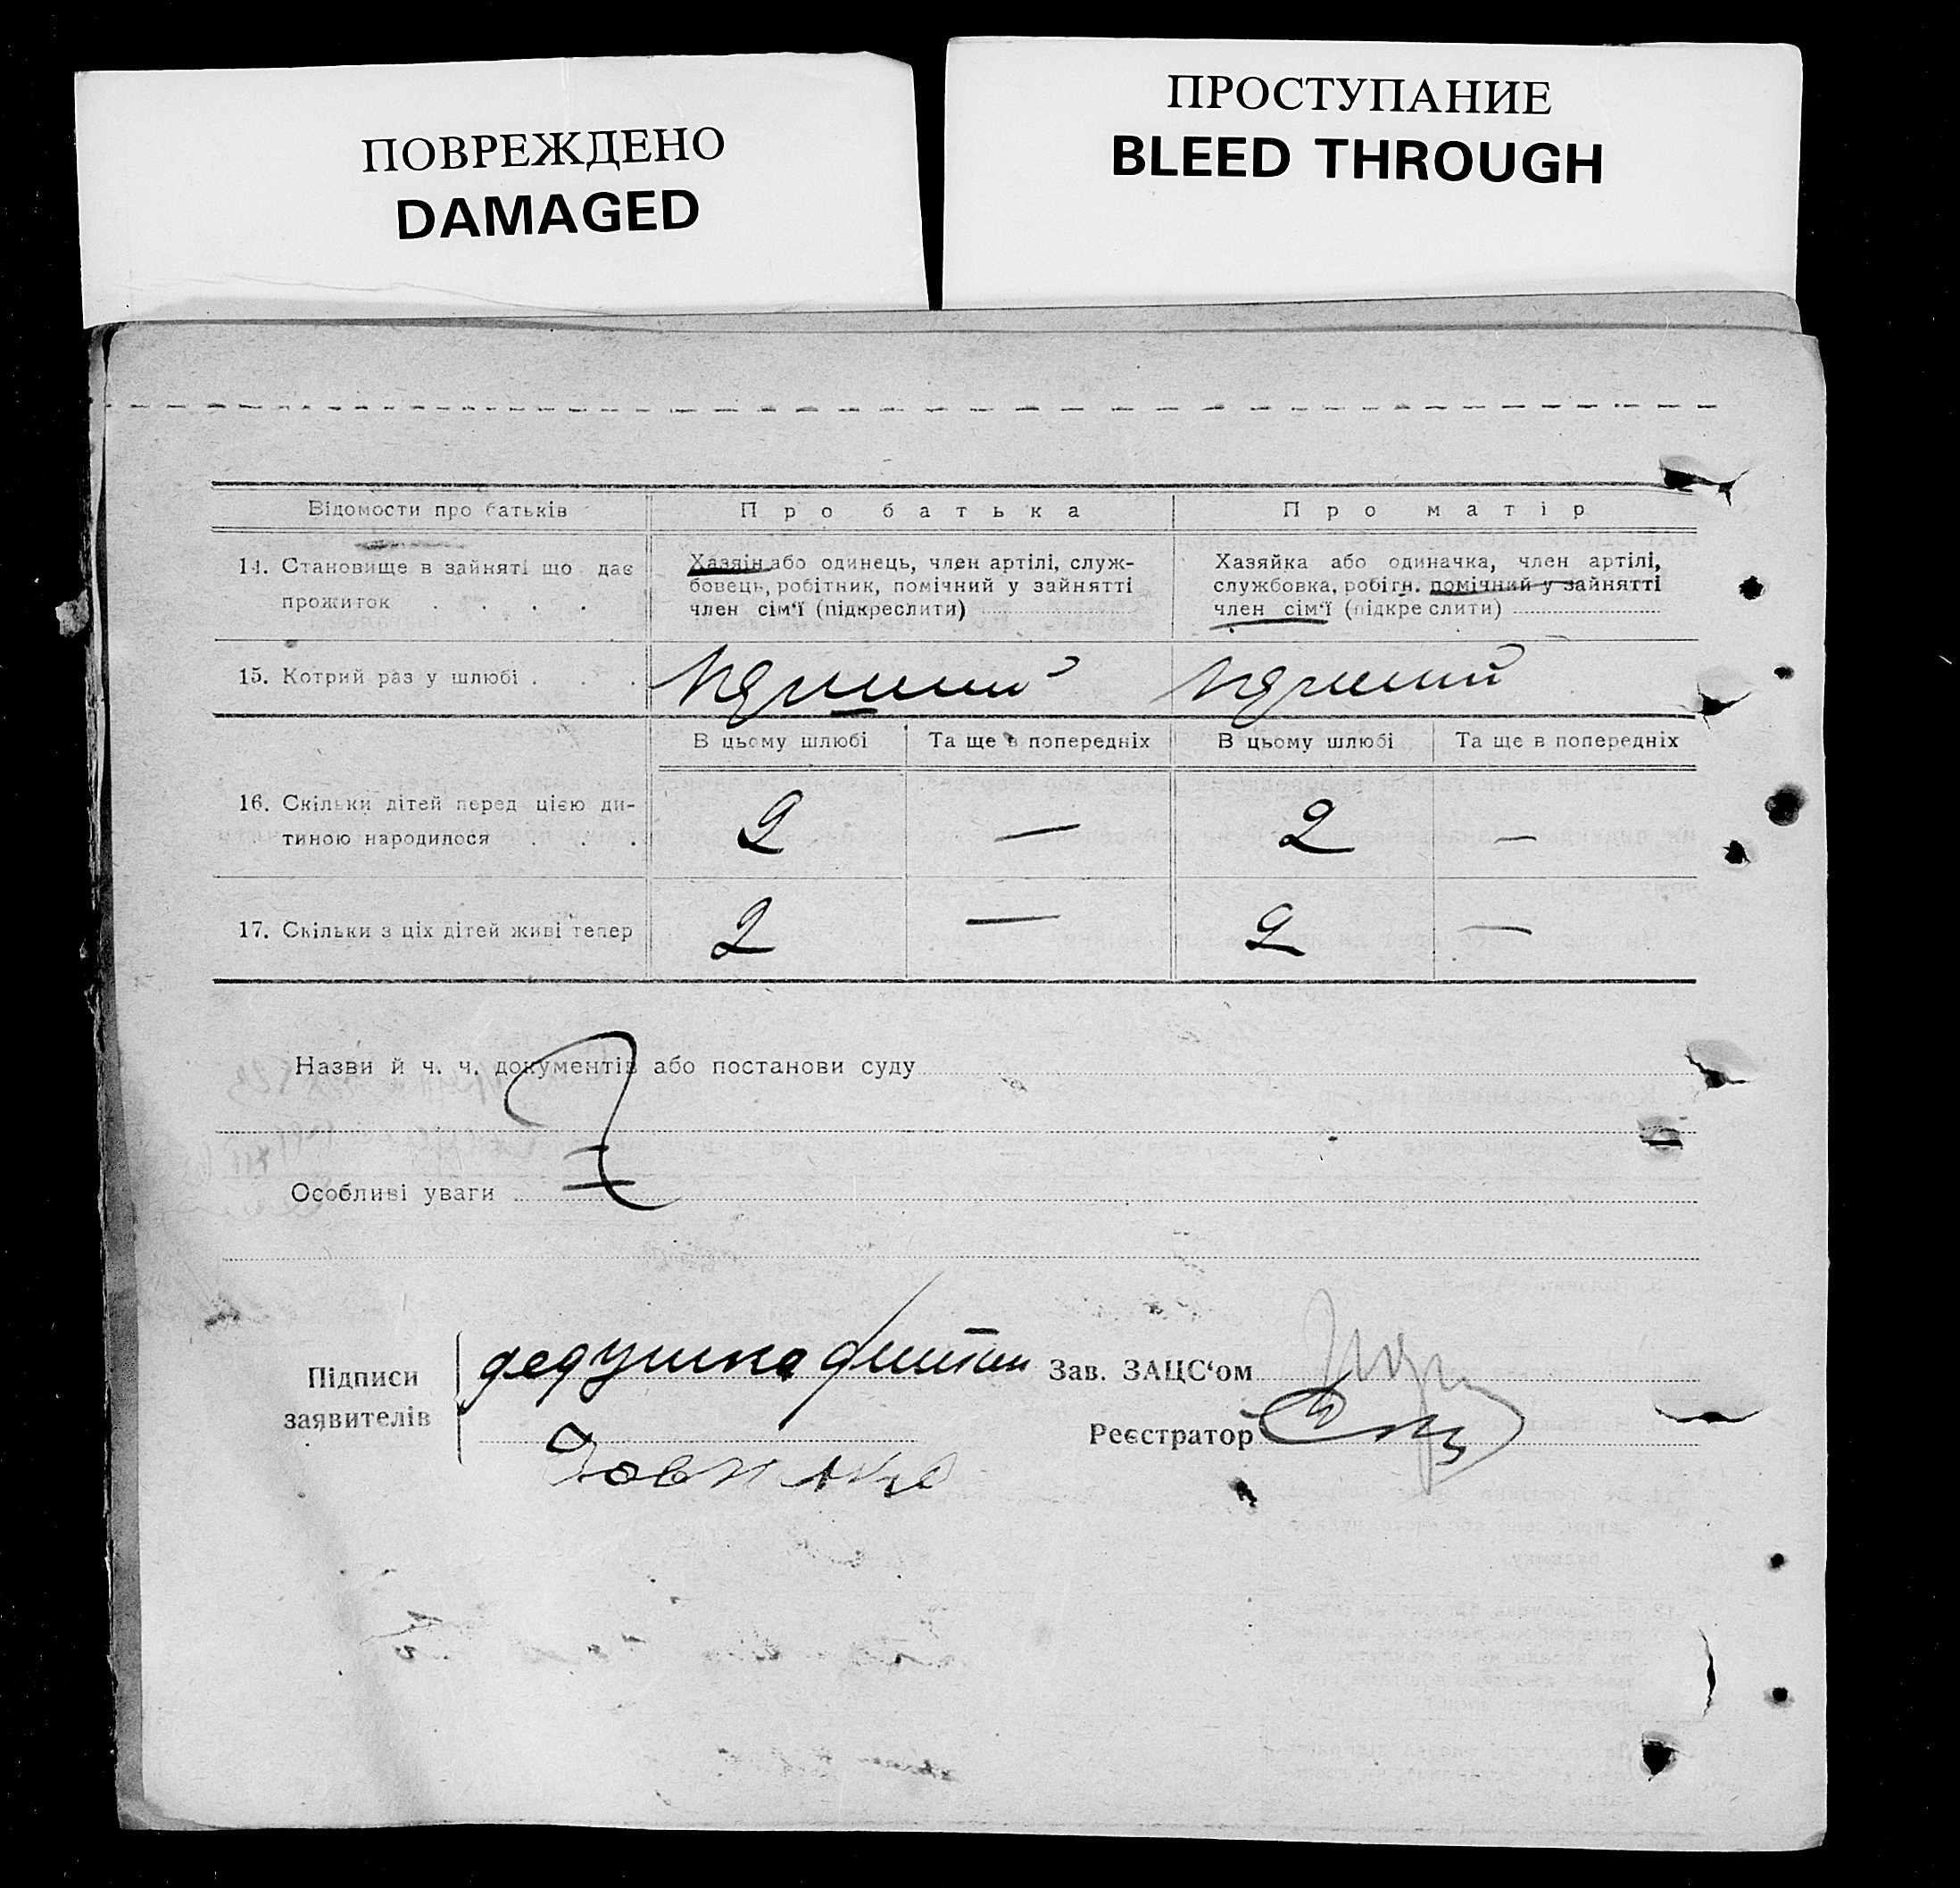 ПОВРЕЖДЕНО
DAMAGED
ПРОСТУПАНИЕ
BLEED THROUGH
Відомости про батьків
Про батька
Про матір
14. Становище в зайняті що дає
прожиток . . . .
Хазяїн або одинець, член артілі, служ-
бовець, робітник, помічний у зайнятті
член сім'ї (підкреслити)
Хазяйка або одиначка, член артілі,
службовка, робітн. помічний у зайнятті
член сім'ї (підкреслити)
15. Котрий раз у шлюбі . . .
В цьому шлюбі
Та ще в попередніх
В цьому шлюбі
Та ще в попередніх
16. Скільки дітей перед цією ди-
тиною народилося . . .
2 — 2 —
17. Скільки з ціх дітей живі тепер
2 — 2 —
Назви й ч. ч. документів або постанови суду
Особливі уваги
Підписи
заявителів
дедушка
Зав. ЗАЦС‘ом
Реєстратор